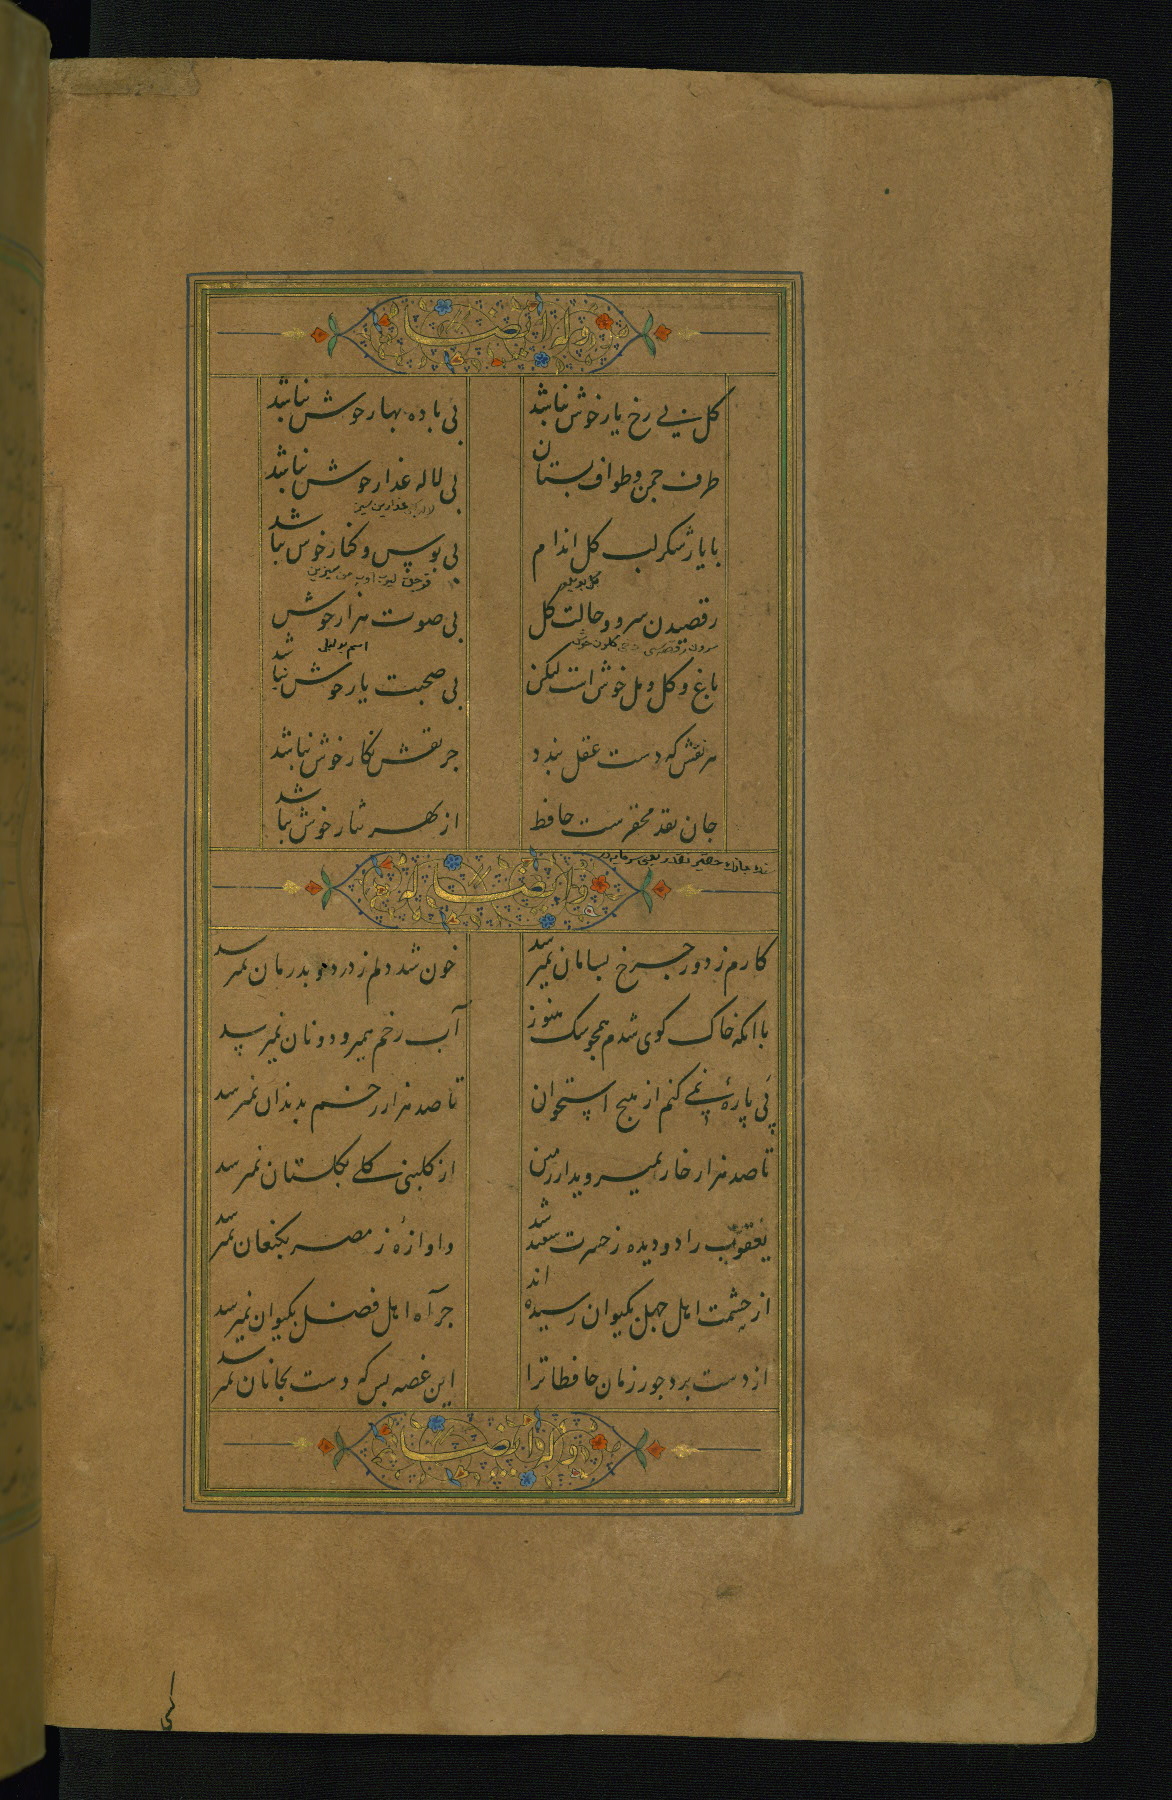 وله ایضا
کل بی رخ یار خوش نباشد بی باده بهار خوش نباشد
طرف چمن و طواف بستان بی لاله عذار خوش نباشد
با یار شکر لب کل اندام بی بوس و کنار خوش نباشد
رقصیدن سرو و حالت کل بی صوت هزار خوش نباشد
باغ و کل و مل خوش است لیکن بی صحبت یار خوش نباشد
هر نقش که دست عقل بندد جز نقش نکار خوش نباشد
جان نقد محقرست حافظ از بهر نثار خوش نباشد
وله ایضا
کارم ز دور چرخ بسامان نمیرسد خون شد دلم ز درد و بدرمان نمیرسد
با آنکه خاک کوی شدم همچو سک هنوز آب رخم همیرود و نان نمیرسد
پی پارهٔ نمی کنم از هیچ استخوان تا صد هزار زخم بدندان نمیرسد
تا صد هزار خار نمیروید از زمین از کلبنی کلی بکلستان نمیرسد
یعقوب را دو دیده ز حسرت سفید شد واوازهٔ ز مصر بکنعان نمیرسد
از حشمت اهل جهل بکیوان رسیده اند جز آه اهل فضل بکیوان نمیرسد
از دست برد جور زمان حافظا ترا این غصه بس که دست بجانان نمیرسد
وله ایضا